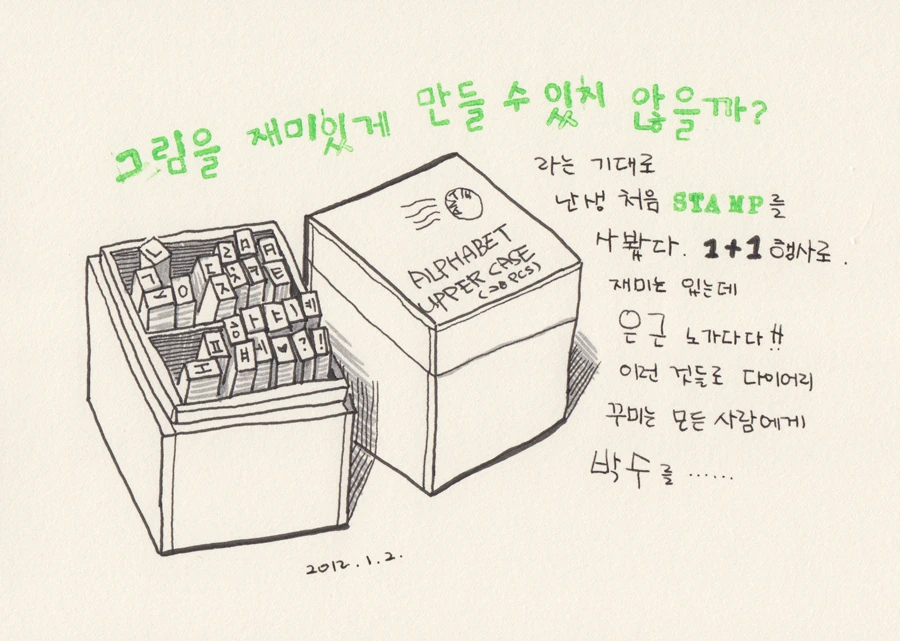 그림을 재미있게 만들 수 있지 않을까?
라는 기대로
난생 처음 STAMP를
사봤다. 1+1 행사로.
재미는 있는데
은근 노가다다!!
이런 것들로 다이어리
꾸미는 모든 사람에게
박수를 ......
ALPHABET
UPPER CASE
(28 PCS)
2012.1.2.